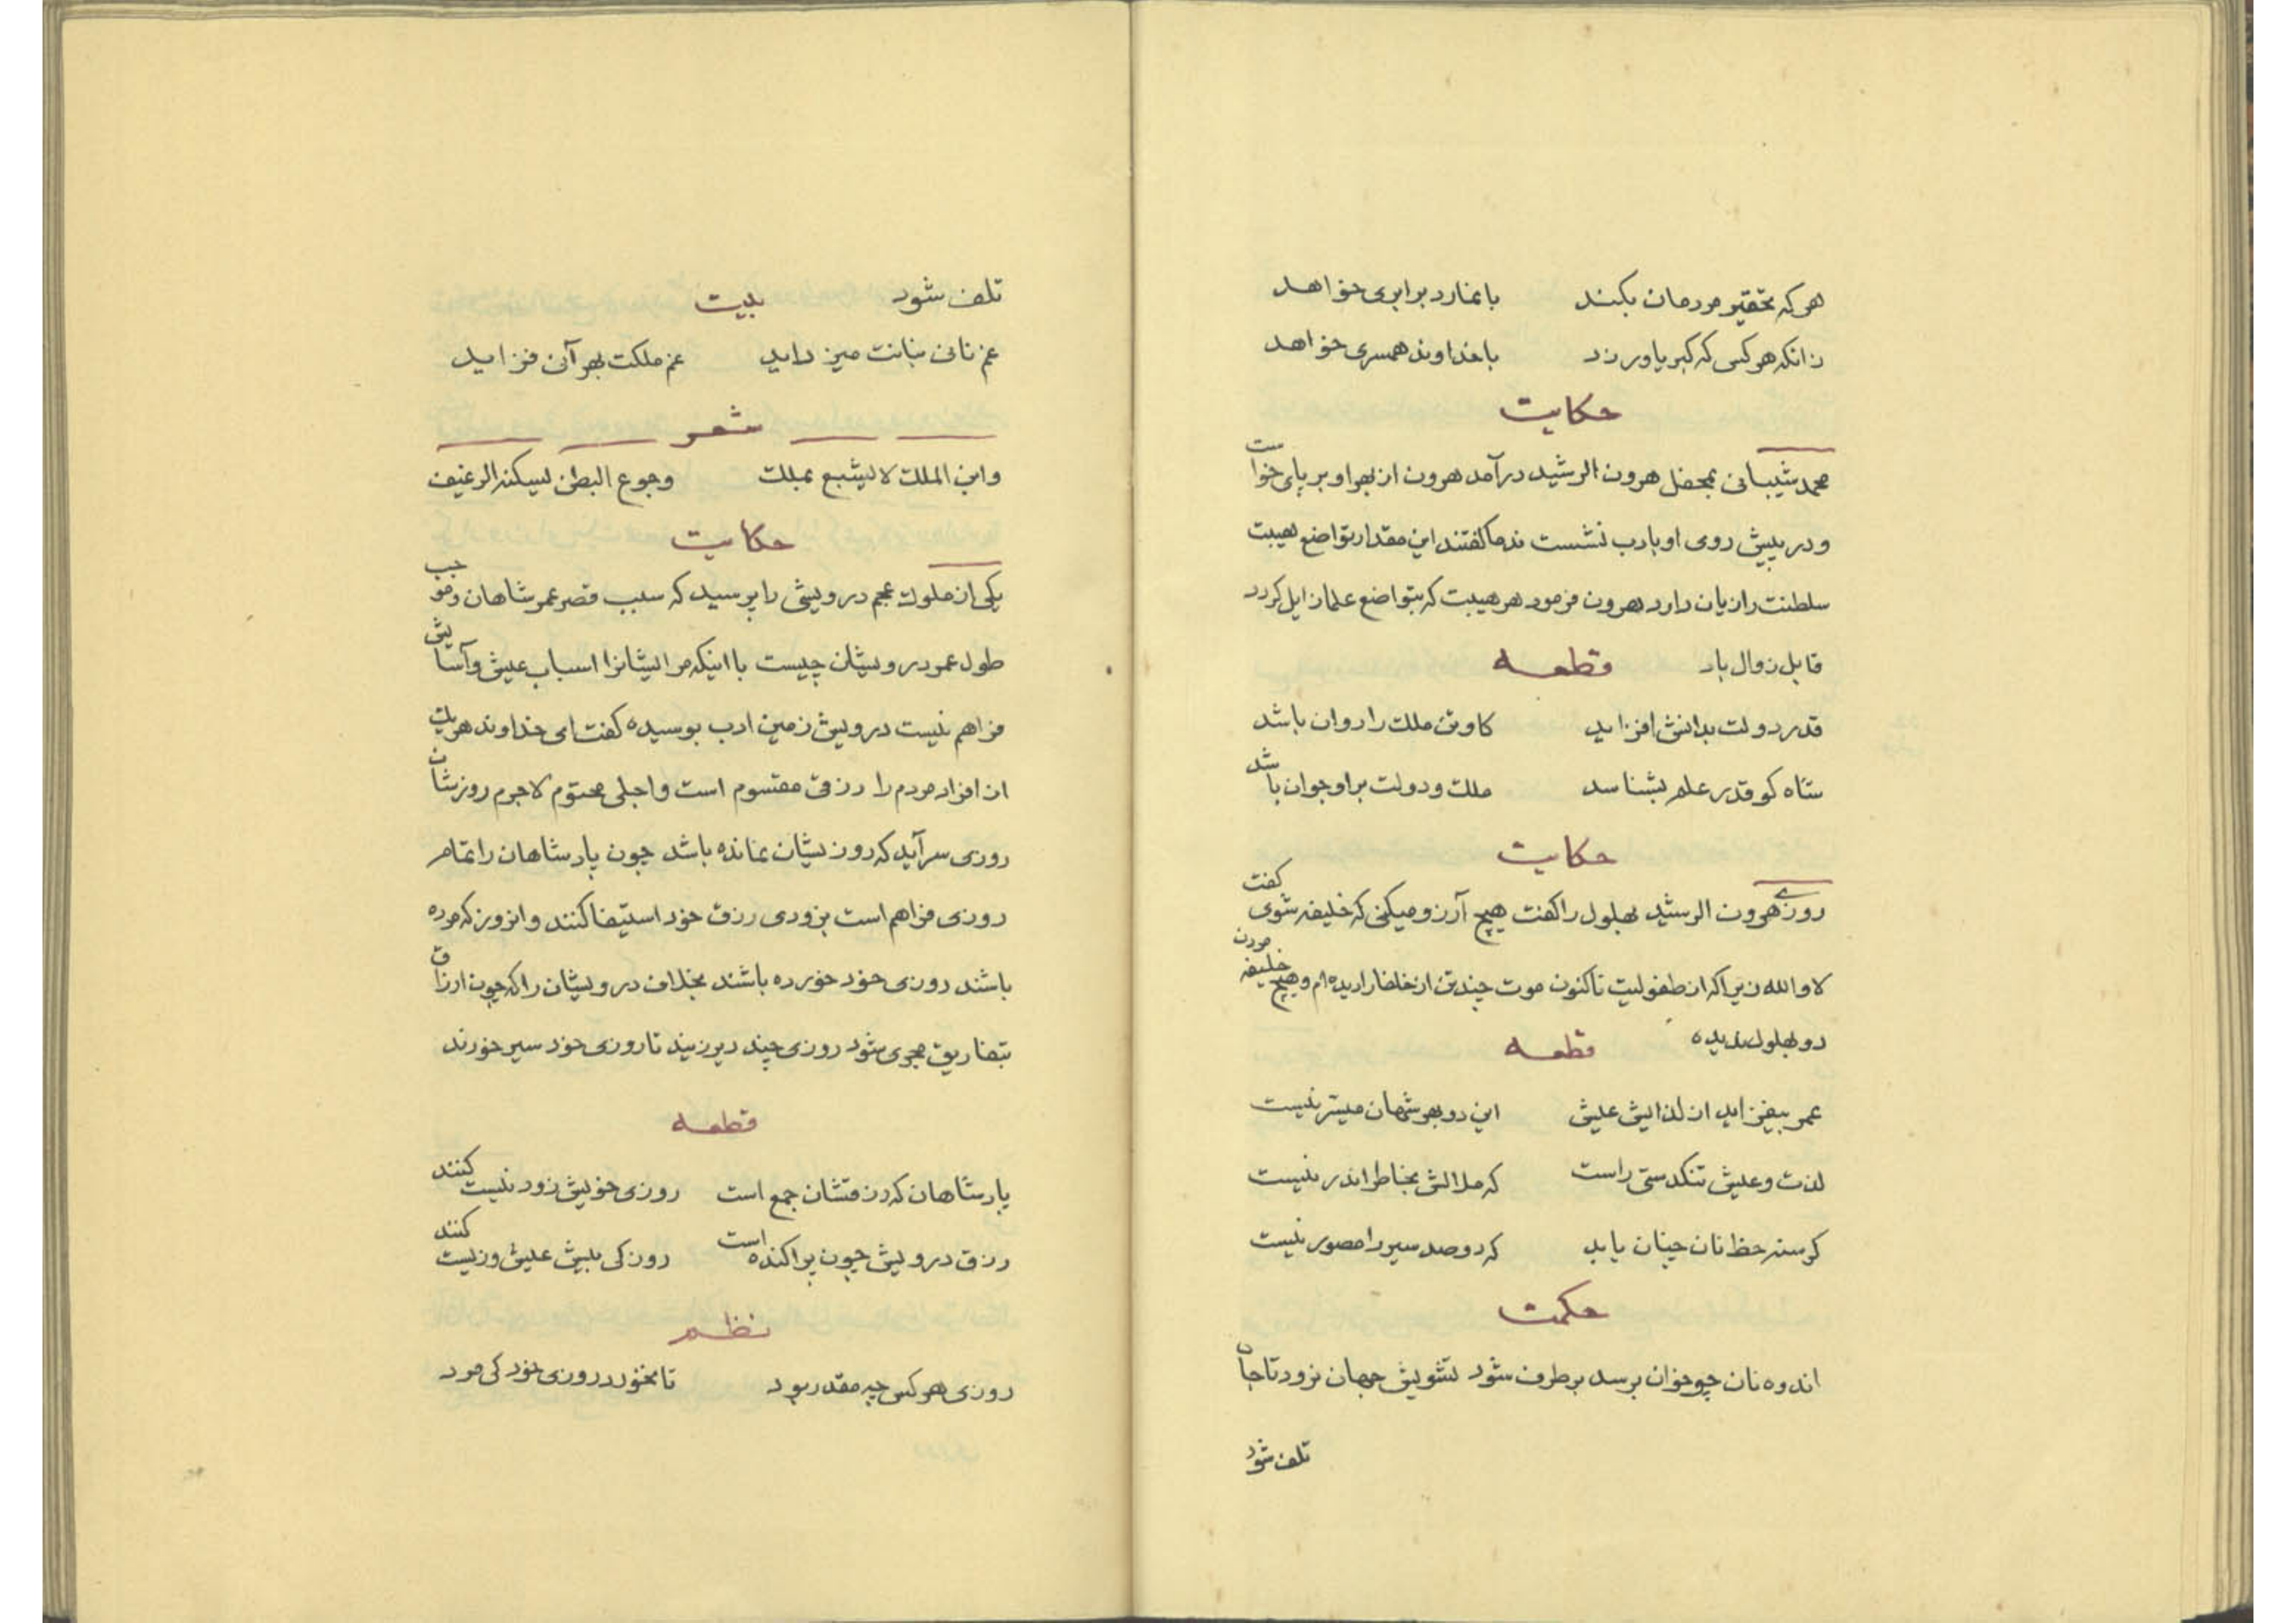 هر که تحقیر مردمان بکند با نمارد برابری خواهد
زانکه هر کس که کبریا ورزد با خداوند همسری خواهد
حکایت
محمد شیبانی بمحفل هرون الرشید درآمد هرون از بهر او بر پای خواست
و در پیش روی او بادب نشست ندما گفتند این مقدار تواضع هیبت
سلطنت را زیان دارد هرون فرمود هر هیبت که بتواضع علما زایل گردد
قابل زوال باد قطعه
قدر دولت بدانش افزاید کاو تن ملک را روان باشد
شاه کو قدر علم بشناسد ملک و دولت بر او جوان باشد
حکایت
روزی هرون الرشید بهلول را گفت هیچ آرزو میکنی که خلیفه شوی گفت
لا والله زیرا که از طفولیت تاکنون موت چند تن از خلفا را دیده‌ام و هیچ خلیفه مردن
دو بهلول ندیده قطعه
عمر بیفزاید از لذایش عیش این دو بهر شهان میسر نیست
لذت و عیش تنکدستی راست که ملالش بخاطر اندر نیست
کرسنه حظ نان چنان یابد که دو صد سیر را مصور نیست
حکمت
اندوه نان چو خوان برسد برطرف شود تشویش جهان نرود تا جان
تلف شود
تلف شود بیت
غم نانی بنانت میزداید غم ملکت بهر آنی فزاید
شعر
وابن الملک لا یشبع بملک وجوع البطن یسکنه الرغیف
حکایت
یکی از ملوک عجم درویشی را پرسید که سبب قصر عمر شاهان و موجب
طول عمر درویشان چیست با اینکه مر ایشانرا اسباب عیش و آسایش
فراهم نیست درویش زمین ادب بوسیده گفت ای خداوند هر یک
از افراد مردم را رزقی مقسوم است و اجلی محتوم لاجرم روزشان
روزی سرآید که روزیشان نمانده باشد چون پادشاهان را تمام
روزی فراهم است بزودی رزق خود استیفا کنند و انروز که مرده
باشند روزی خود خورده باشند بخلاف درویشان را که چون ارزاق
بتفاریق مجری شود روزی چند دیرزیند تا روزی خود سیر خورند
قطعه
پادشاهان که رزقشان جمع است روزی خویش زود نیست کنند
رزق درویش چون پراکنده است روزکی بیش عیش و زیست کنند
نظم
روزی هر کس چه مقدر بود تا نخورد روزی خود کی مرد